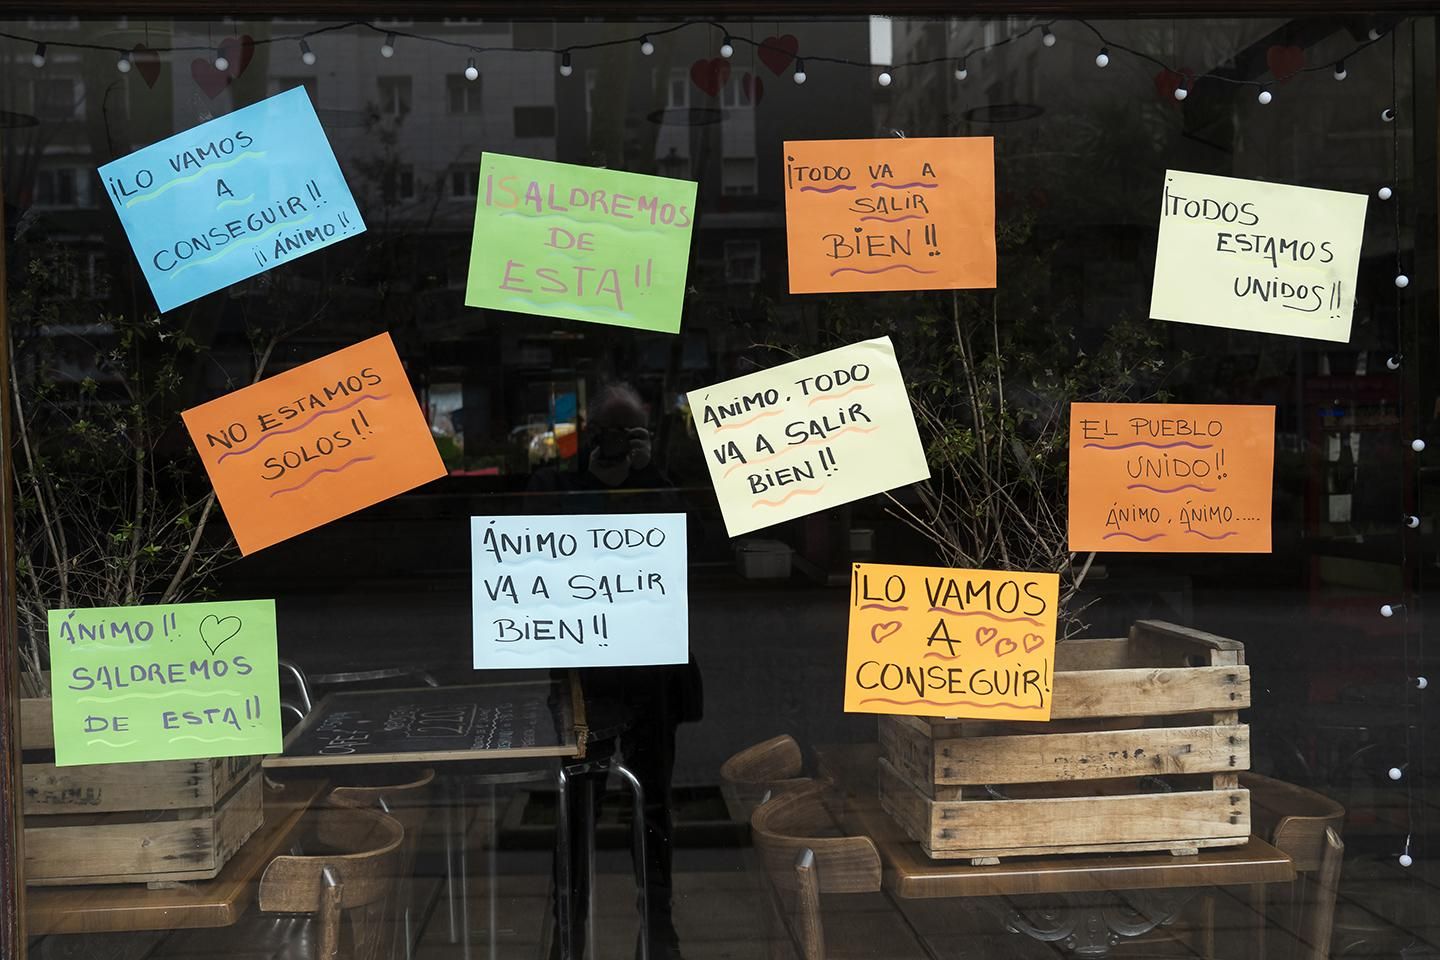 ¡LO VAMOS
A
CONSEGUIR!!
¡¡ÁNIMO!!
¡SALDREMOS
DE
ESTA!!
¡TODO VA A
SALIR
BIEN!!
¡TODOS
ESTAMOS
UNIDOS!!
NO ESTAMOS
SOLOS!!
ÁNIMO, TODO
VA A SALIR
BIEN!!
EL PUEBLO
UNIDO!!
ÁNIMO, ÁNIMO.....
ÁNIMO!!
SALDREMOS
DE ESTA!!
ÁNIMO TODO
VA A SALIR
BIEN!!
¡LO VAMOS
A
CONSEGUIR!